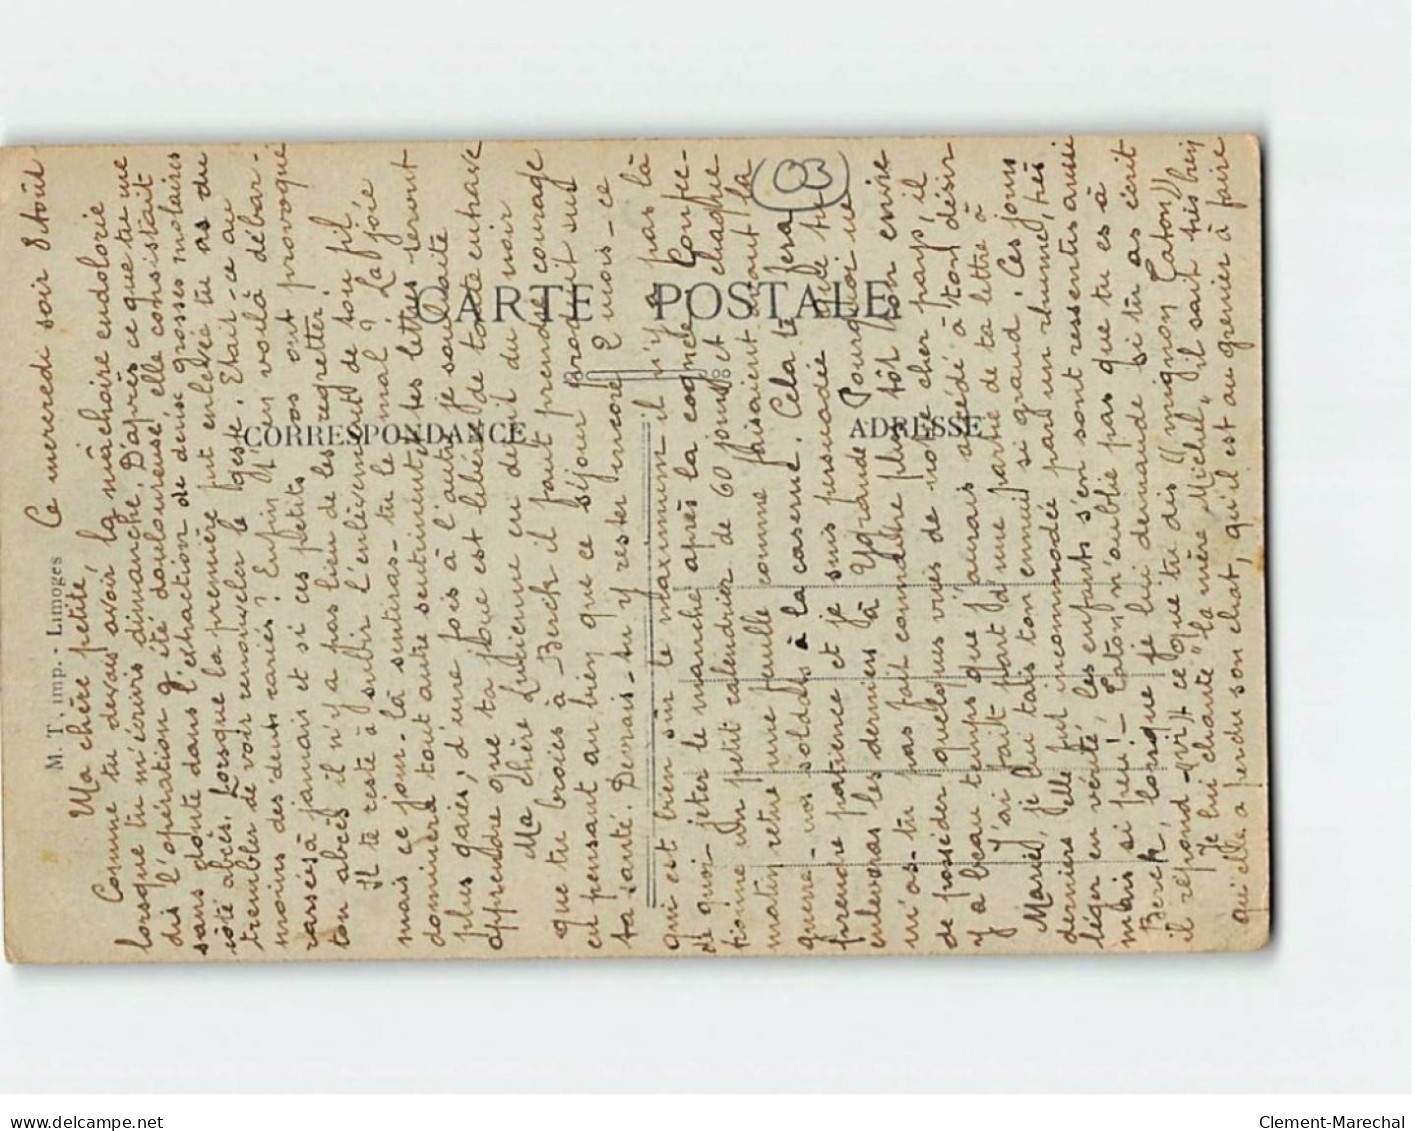 Ce mercredi soir 8 Août
Ma chère petite,
Comme tu devais avoir la mâchoire endolorie
lorsque tu m'écrivis dimanche. D'après ce que tu me
dis l'opération a été douloureuse, elle consistait
sans doute dans l'extraction de deux grosses molaires
côté abcès. Lorsque la première fut enlevée tu as du
trembler de voir renouveler le geste. Était-ce au
moins des dents cariées ? Enfin t'en voilà débar-
rassée à jamais et si ces petits os ont provoqué
ton abcès il n'y a pas lieu de les regretter.
Il te reste à subir l'enlèvement de ton fil
mais ce jour-là sentiras-tu le mal ? La joie
dominera tout autre sentiment, tes lettres seront
plus gaies, d'une fois à l'autre je souhaite
apprendre que ta joue est libérée de toute entrave
Ma chère Lucienne en dépit du noir
que tu broies à Berck il faut prendre courage
en pensant au bien que ce séjour produit sur
ta santé. Devrais-tu y rester encore 2 mois - ce
qui est bien sur le maximum il n'y a pas là
de quoi jeter le manche après la cognée. Confec-
tionne un petit calendrier de 60 jours et chaque
matin retire une feuille comme faisaient avant la
guerre - nos soldats à la caserne. Cela te fera
prendre patience et je suis persuadée que tu
enlèveras les derniers à Ygrande. Pourquoi ne
m'as-tu pas fait connaître plus tôt ton envie
de posséder quelques vues de notre cher pays, il
y a beau temps que j'aurais accédé à ton désir
J'ai fait part d'une partie de ta lettre à
Marie, je lui tais ton ennui si grand. Ces jours
derniers elle fut incommodée par un rhume, très
léger en vérité, les enfants s'en sont ressentis aussi
mais si peu ! - Caton n'oublie pas que tu es à
Berck, lorsque je lui demande si tu as écrit
il répond "vi" ce que tu dis "mignon Caton"
Je lui chante "la mère Michel" il sait très bien
qu'elle a perdu son chat, qu'il est au grenier à faire
03
CARTE POSTALE
CORRESPONDANCE
ADRESSE
M. T. imp. - Limoges
delcampe.net
Clement-Marechal